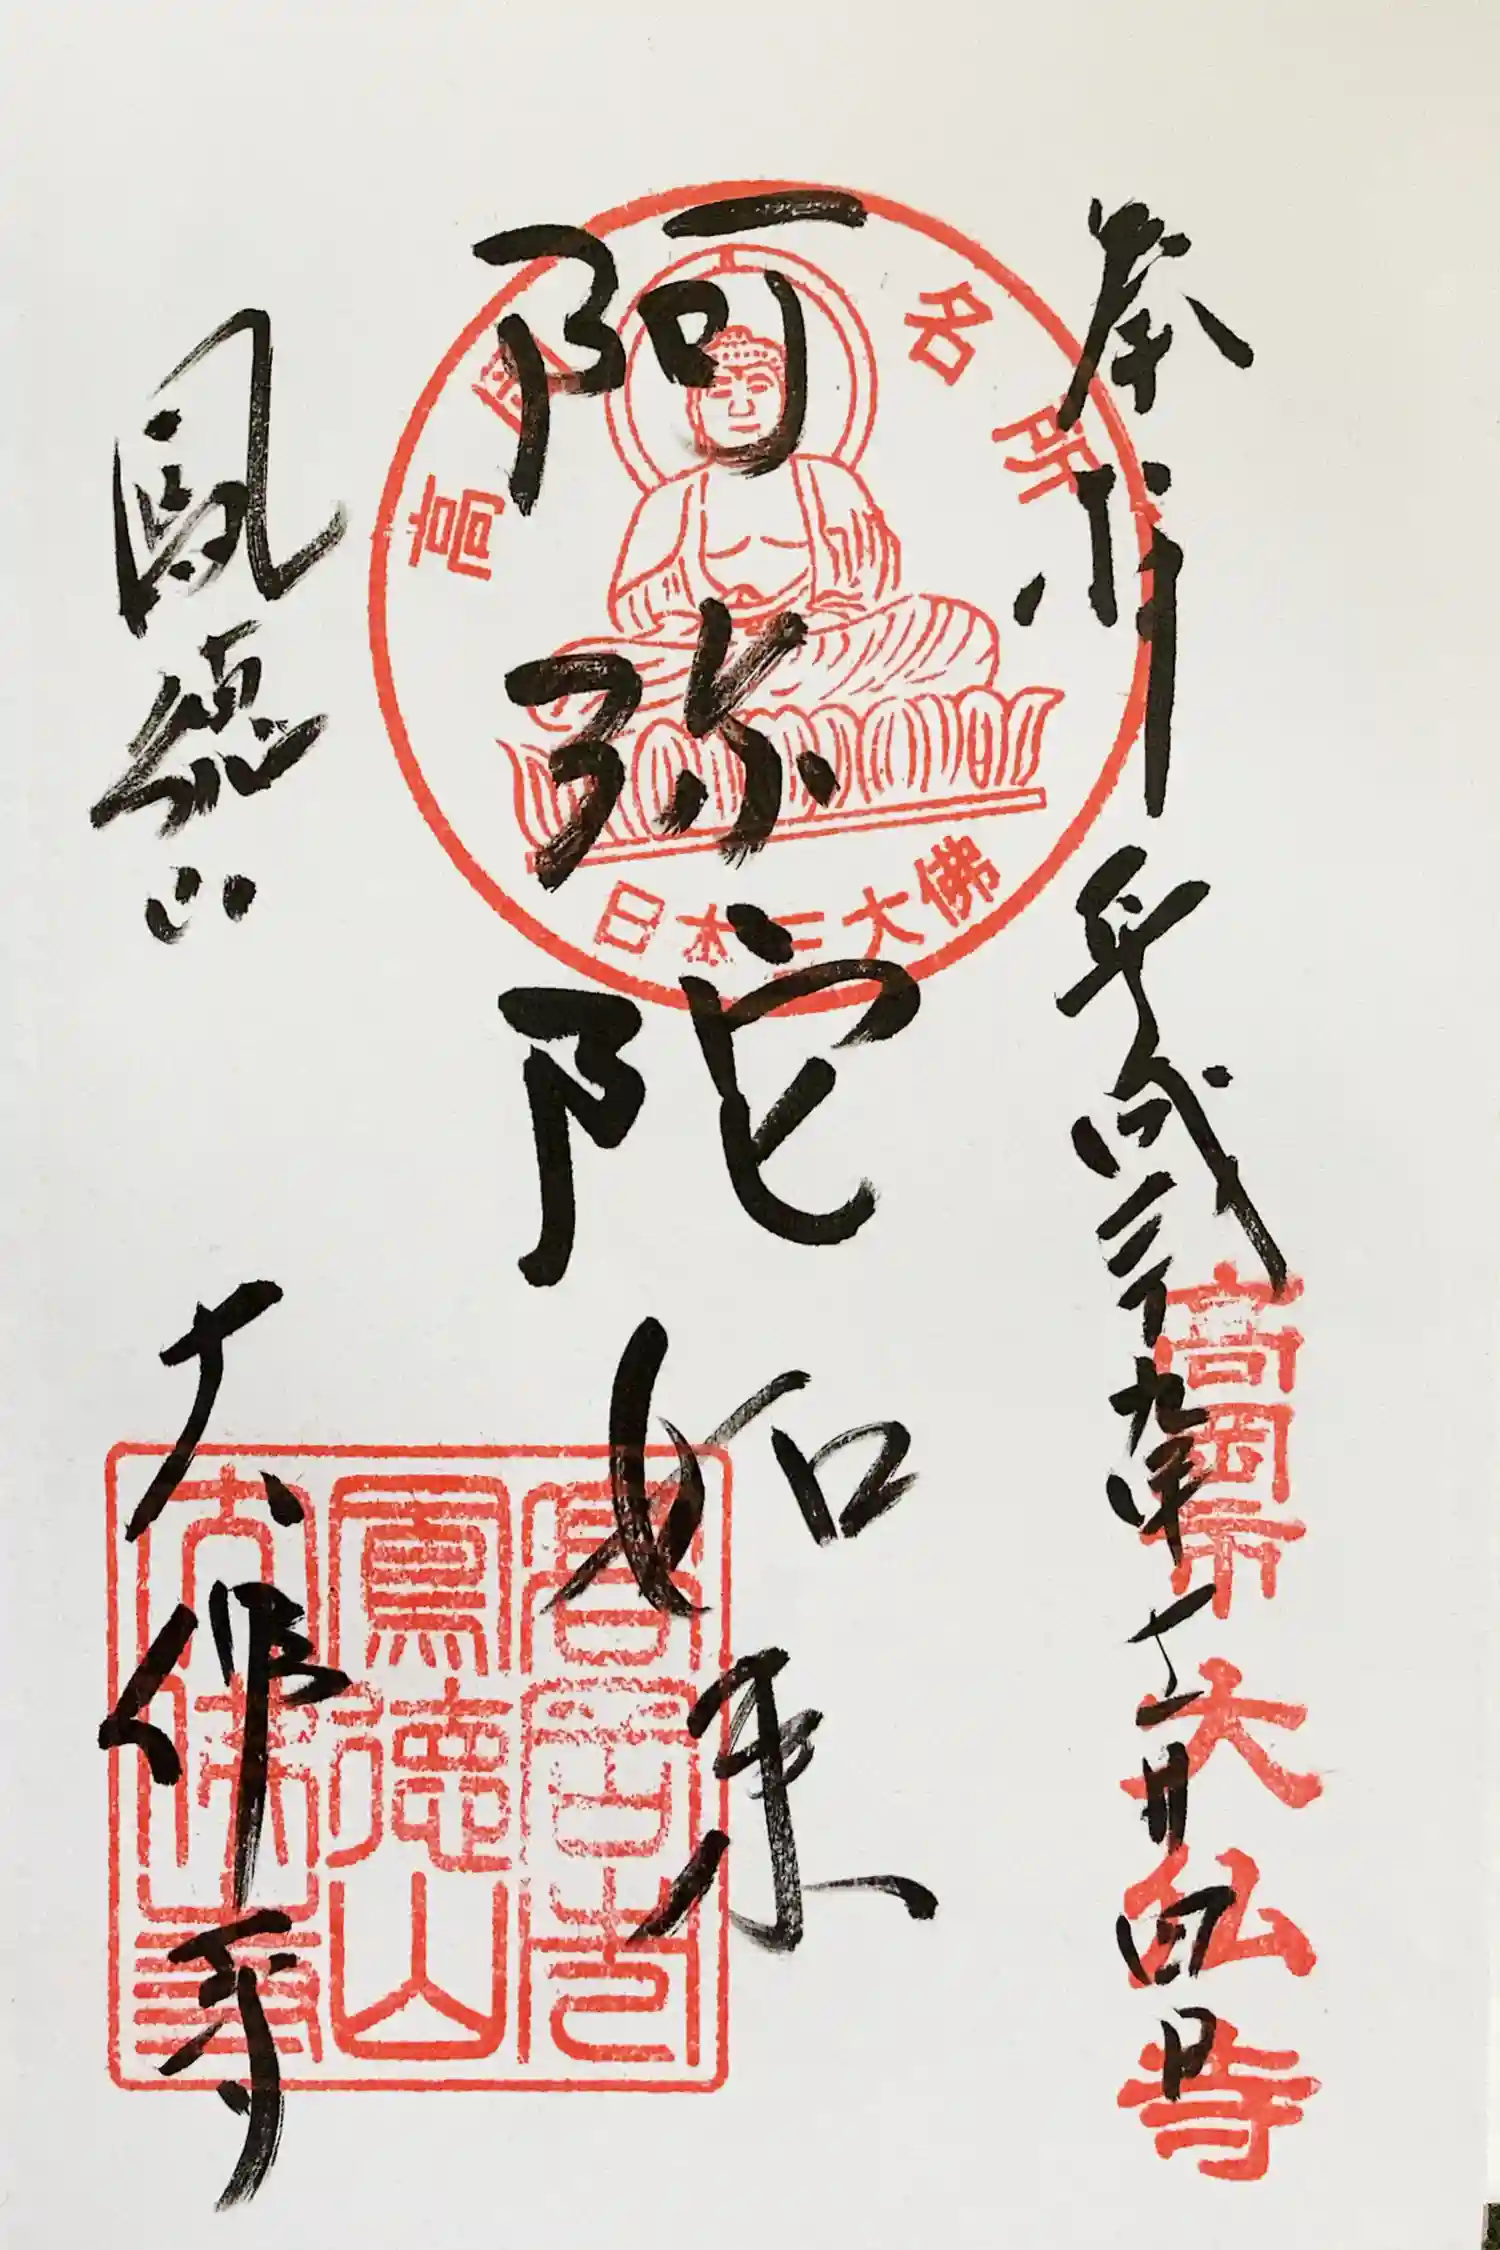 奉拝 平成二十九年十一月四日
阿弥陀如来
鳳徳山
大佛寺
高岡名所
日本三大佛
高岡市 大仏寺
高岡市
鳳徳山
大佛寺